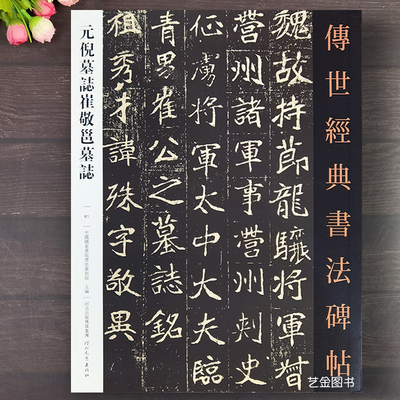 傳世經典書法碑帖
魏故持節龍驤將軍督
營州諸軍事營州刺史
征虜將軍太中大夫臨
青男崔公之墓誌銘
祖秀才諱殊字敬異
元倪墓誌崔敬邕墓誌
艺金图书